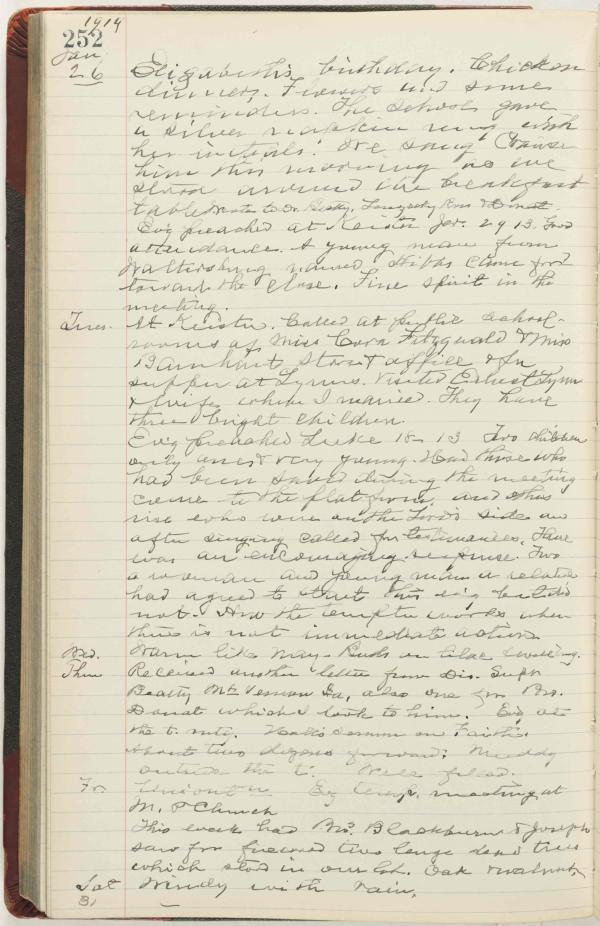 252 1914
Jan
26 Elizabeth's birthday. Chicken
dinner, flowers and some
reminders. The schools gave
a silver napkin ring with
her initials. We sang "Praise
him this morning as we
stood around the breakfast
table. to Dr. Beatty, & Donat.
Ev'g preached at Keister Jer. 29 13. Good
attendance. A young man from
Waltersburg named came for'd
toward the close. Fine spirit in the
meeting.
Tues. At Keister. Called at public school-
rooms of Miss Cora Fitzguald & Miss
Barnhart, Store & office & for
supper at Lynns. Visited Ernest Lynn
& wife whom I married. They have
three bright children.
Ev'g preached Luke 18-13 Two children
only and very young. Had those who
had been saved during the meeting
come to the platform, and others
rise who were on the Lord's side and
after singing called for testimonies. There
was an encouraging response. Two
a woman and young man a relative
had agreed to start this ev'g but did
not. How the tempter works when
there is not immediate action.
Wed. Warm like May. Buds on lilac swelling.
Thur Received another letter from Dis. Supt
Beatty Mt. Vernon Ia, also one from Bro.
Donat which I took to him. Ev'g at
the t. mtg. sermon on Faith.
About two dozens forward. Muddy
outside the t. Well filled.
Fr. Uniontn Ev'g meeting at
M. P Church
This week had Bros. Blackburn & Joseph
saw for firewood two large dead trees
which stood in our lot. Oak & walnut.
Sat Windy with rain.
31